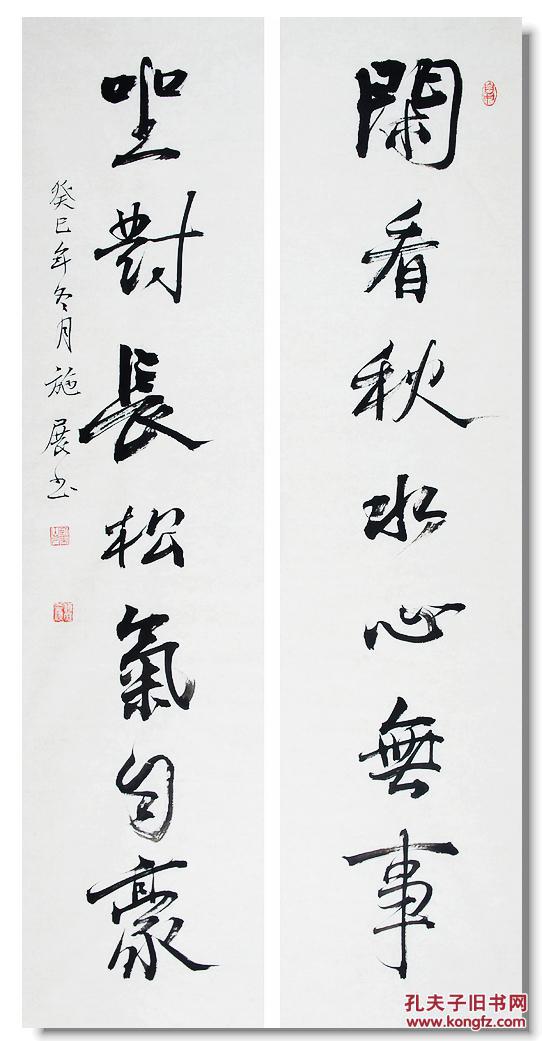 閑看秋水心無事
坐對長松氣自豪
癸巳年冬月施展书
孔夫子旧书网
www.kongfz.com